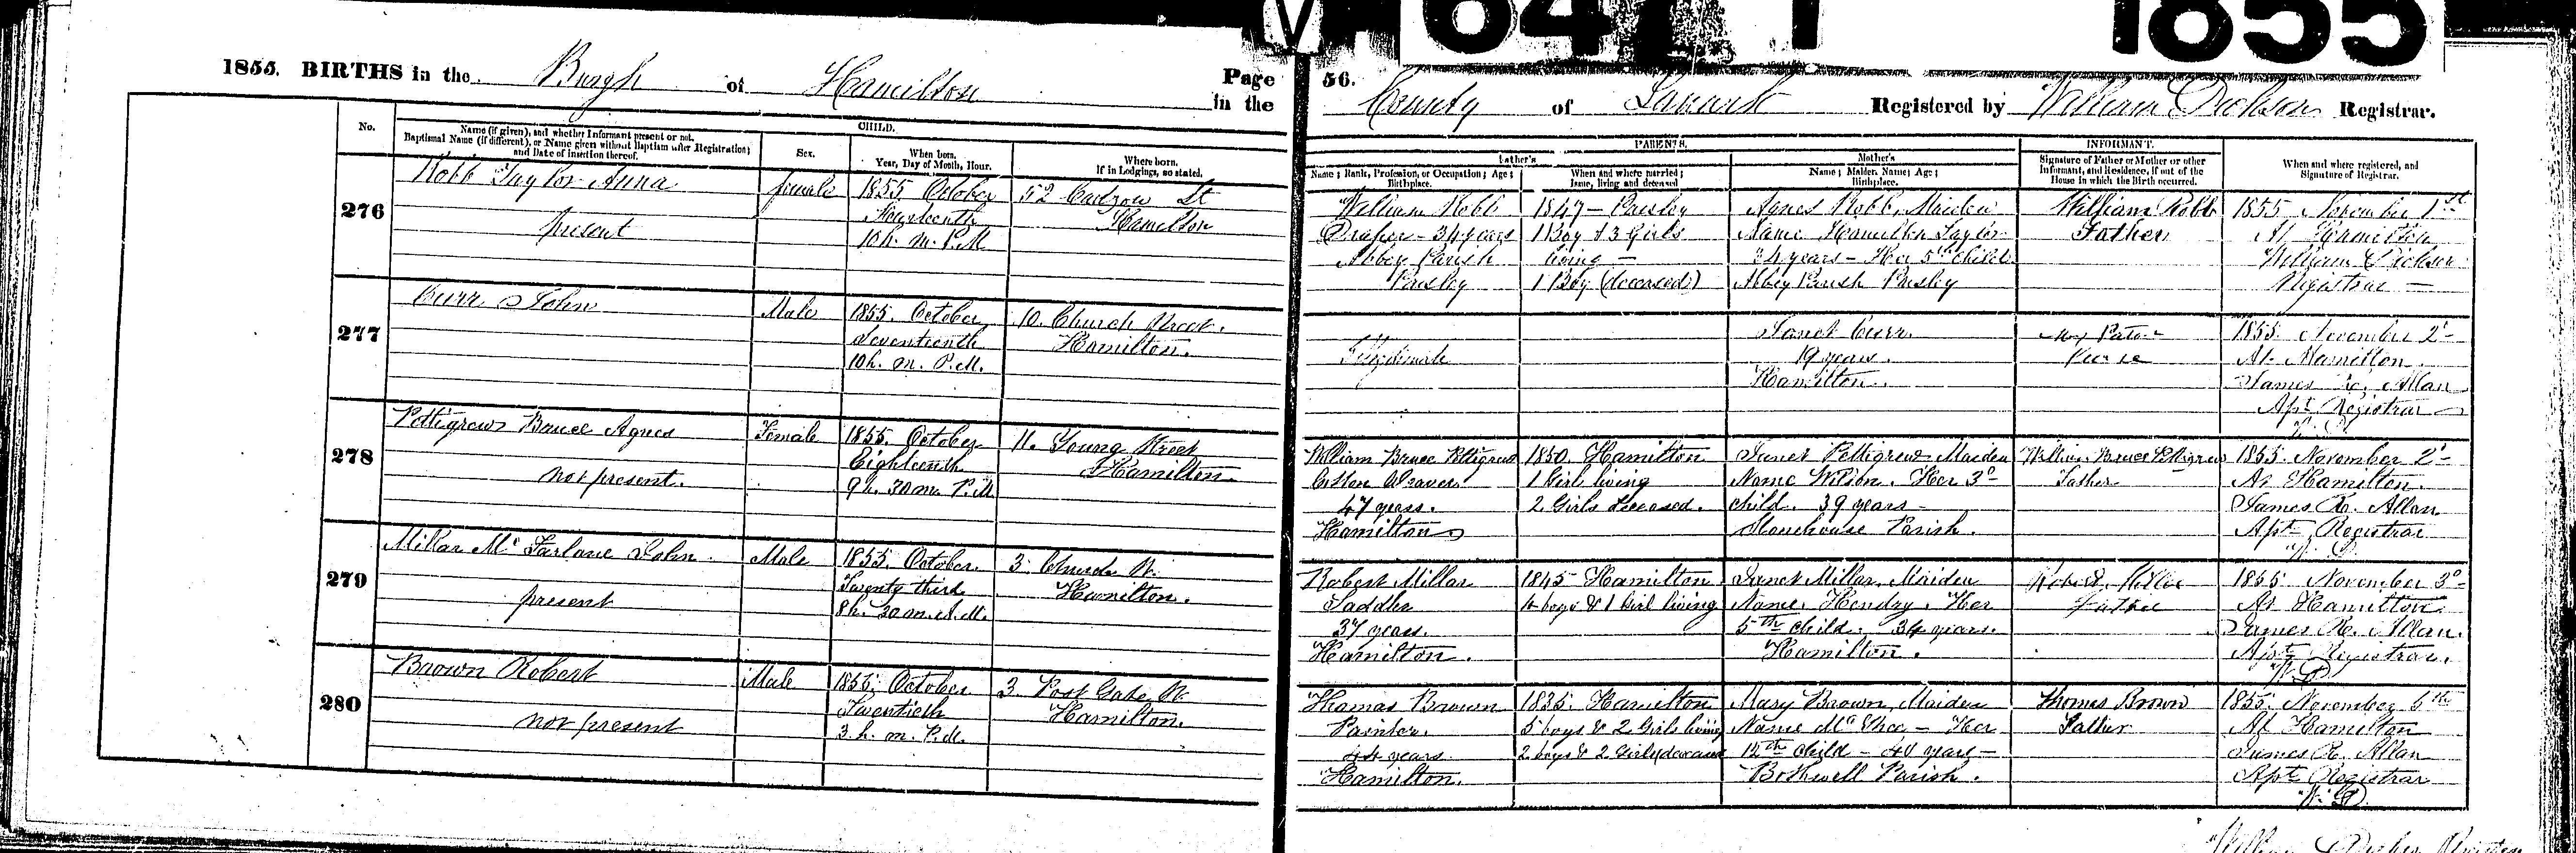 641
1855
1855. BIRTHS in the Burgh of Hamilton Page 56.
in the County of Lanark Registered by William Dickson Registrar.
No.
CHILD.
Name (if given), and whether Informant present or not.
Baptismal Name (if different), or Name given without Baptism after Registration;
and Date of insertion thereof.
Sex.
When born.
Year, Day of Month, Hour.
Where born.
If in Lodgings, so stated.
PARENTS.
Father's
Name; Rank, Profession, or Occupation; Age;
Birthplace.
When and where married;
Issue, living and deceased
Mother's
Name; Maiden Name; Age;
Birthplace.
INFORMANT.
Signature of Father or Mother or other
Informant, and Residence, if out of the
House in which the Birth occurred.
When and where registered, and
Signature of Registrar.
276
Robb Taylor Anna
present
female
1855 October
10h. m. P.M.
52 Cadzow St
Hamilton
William Robb
Draper - 34 years
Abbey Parish
Paisley
1847 - Paisley
1 Boy & 3 Girls
living -
1 Boy (deceased)
Agnes Robb, Maiden
Name Hamilton Taylor
34 years - Her 5th child
Abbey Parish Paisley
William Robb
Father
1855 November 1st
At Hamilton
William Dickson
Registrar -
277
Curr John
Male
1855. October
Seventeenth
10h. m. P.M.
10. Church Street.
Hamilton.
Illegitimate
Janet Curr.
19 years.
Hamilton.
1855. November 2d
At Hamilton
James R. Allan
Asst Registrar
W. D.
278
Pettigrew Bruce Agnes
not present.
Female
1855. October
Eighteenth
9h. 30m. P.M.
11. Young Street
Hamilton
William Bruce Pettigrew
Cotton Weaver
47 years.
Hamilton
1850. Hamilton
1 Girl living
2 Girls deceased.
Janet Pettigrew Maiden
Name Wilson. Her 3d
child. 39 years -
Stonehouse Parish.
William Bruce Pettigrew
Father
1855. November 2d
At Hamilton.
James R. Allan
Asst Registrar
W. D.
279
Millar Mc Farlane John.
present
Male
1855. October.
Twenty third
8h. 30m. A.M.
3. Church St.
Hamilton.
Robert Millar
Saddler
37 years.
Hamilton.
1845 Hamilton
4 boys & 1 Girl living
Janet Millar, Maiden
Name. Hendry. Her
5th child. 34 years.
Hamilton.
Robert Millar
Father
1855. November 3d
At Hamilton.
James R. Allan.
Asst Registrar.
W. D.
280
Brown Robert
not present
Male
1855. October
Twentieth
3. h. m. P.M.
3 Post Gate St.
Hamilton.
Thomas Brown
Painter.
44 years
Hamilton.
1835. Hamilton
5 boys & 2 Girls living
2 boys & 2 Girls deceased
Mary Brown, Maiden
Name Mc Ghee - Her
12th child - 40 years -
Bothwell Parish.
Thomas Brown
Father
1855. November 6th
At Hamilton
James R. Allan
Asst Registrar
W. D.